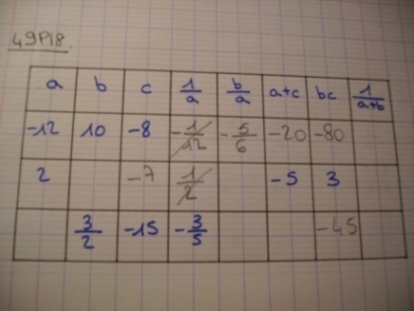 49P18.
a b c 1/a b/a a+c bc 1/a+b
-12 10 -8 -1/12 -5/6 -20 -80
2 -7 1/2 -5 3
3/2 -15 -3/5 -45